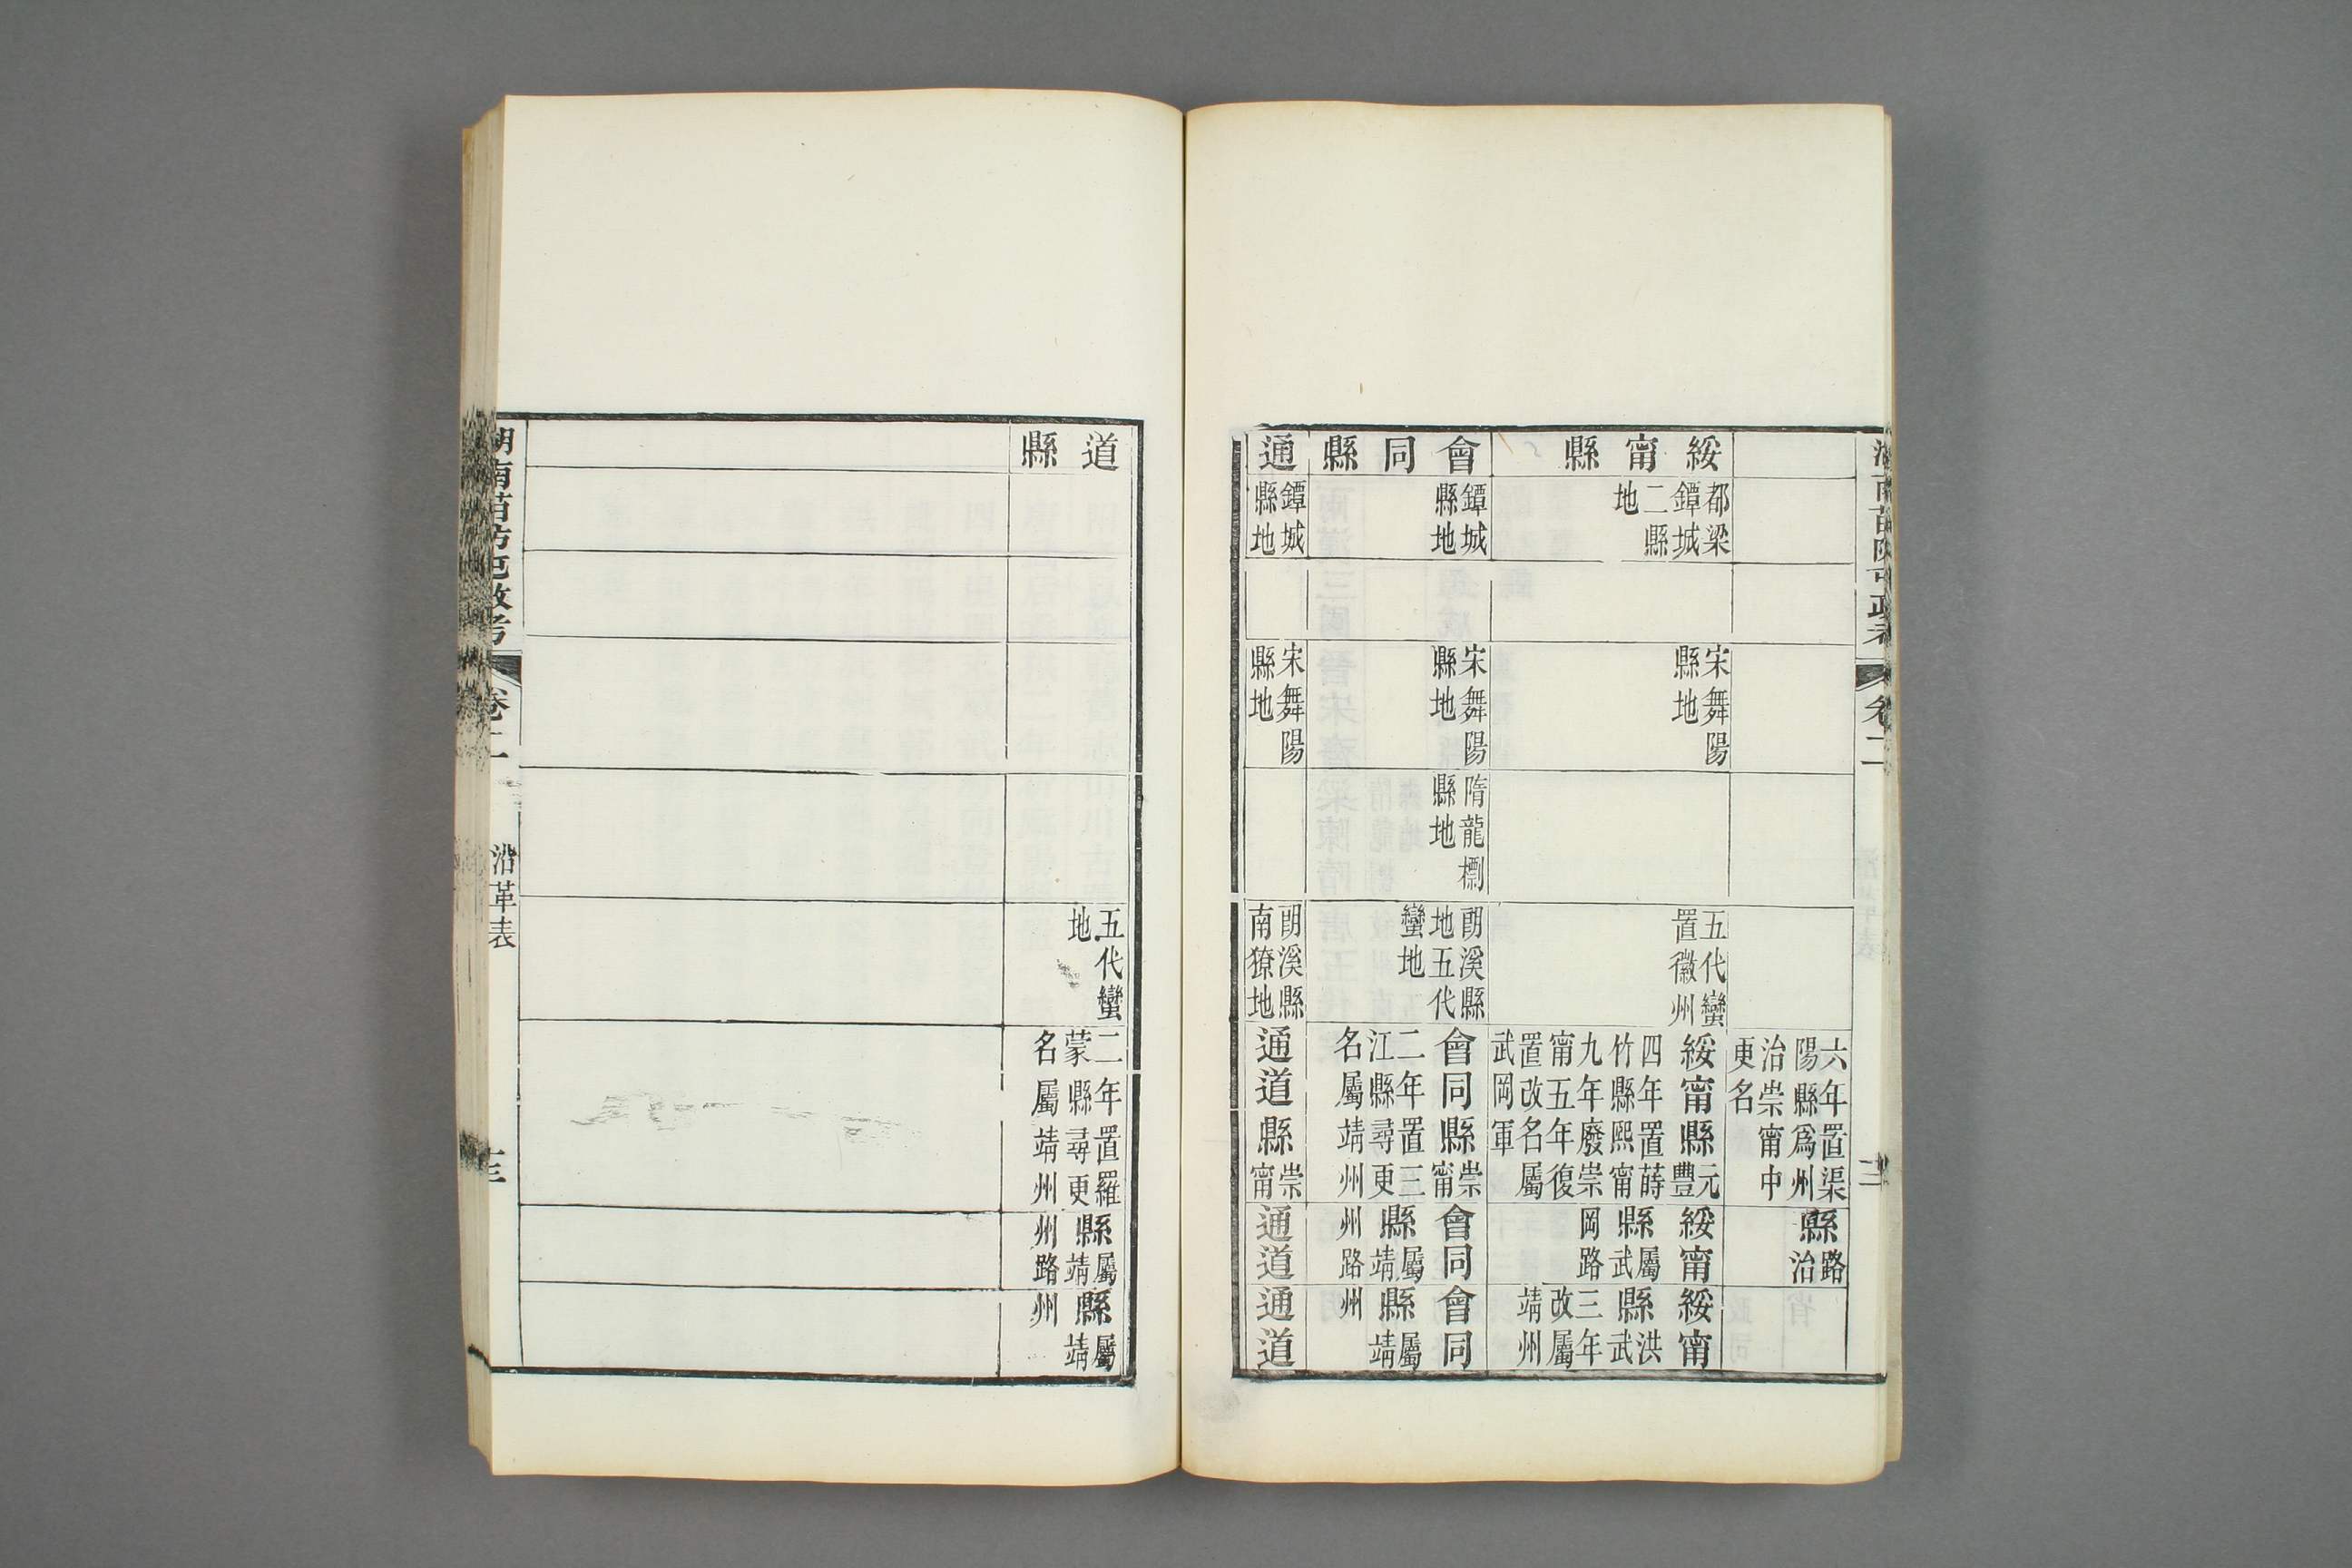 六年置渠
陽縣爲州
治崇甯中
更名
縣路治
綏甯縣
都梁
鐔城
二縣
地
宋舞陽
縣地
五代蠻
置徽州
綏甯縣元豐
四年置蒔
竹縣熙甯
九年廢崇
甯五年復
置改名屬
武岡軍
綏甯
縣屬武
岡路
綏甯
縣洪武
三年
改屬
靖州
會同縣
鐔城
縣地
宋舞陽
縣地
隋龍標
縣地
朗溪縣
地五代
蠻地
會同縣崇甯
二年置三
江縣尋更
名屬靖州
會同
縣屬靖
州路
會同
縣屬靖
州
通
鐔城
縣地
宋舞陽
縣地
朗溪縣
南獠地
通道縣崇甯
通道
通道
道縣
五代蠻
地
二年置羅
蒙縣尋更
名屬靖州
縣屬靖
州路
縣屬靖
州
湖南苗防屯政考
卷二
沿革表
十三